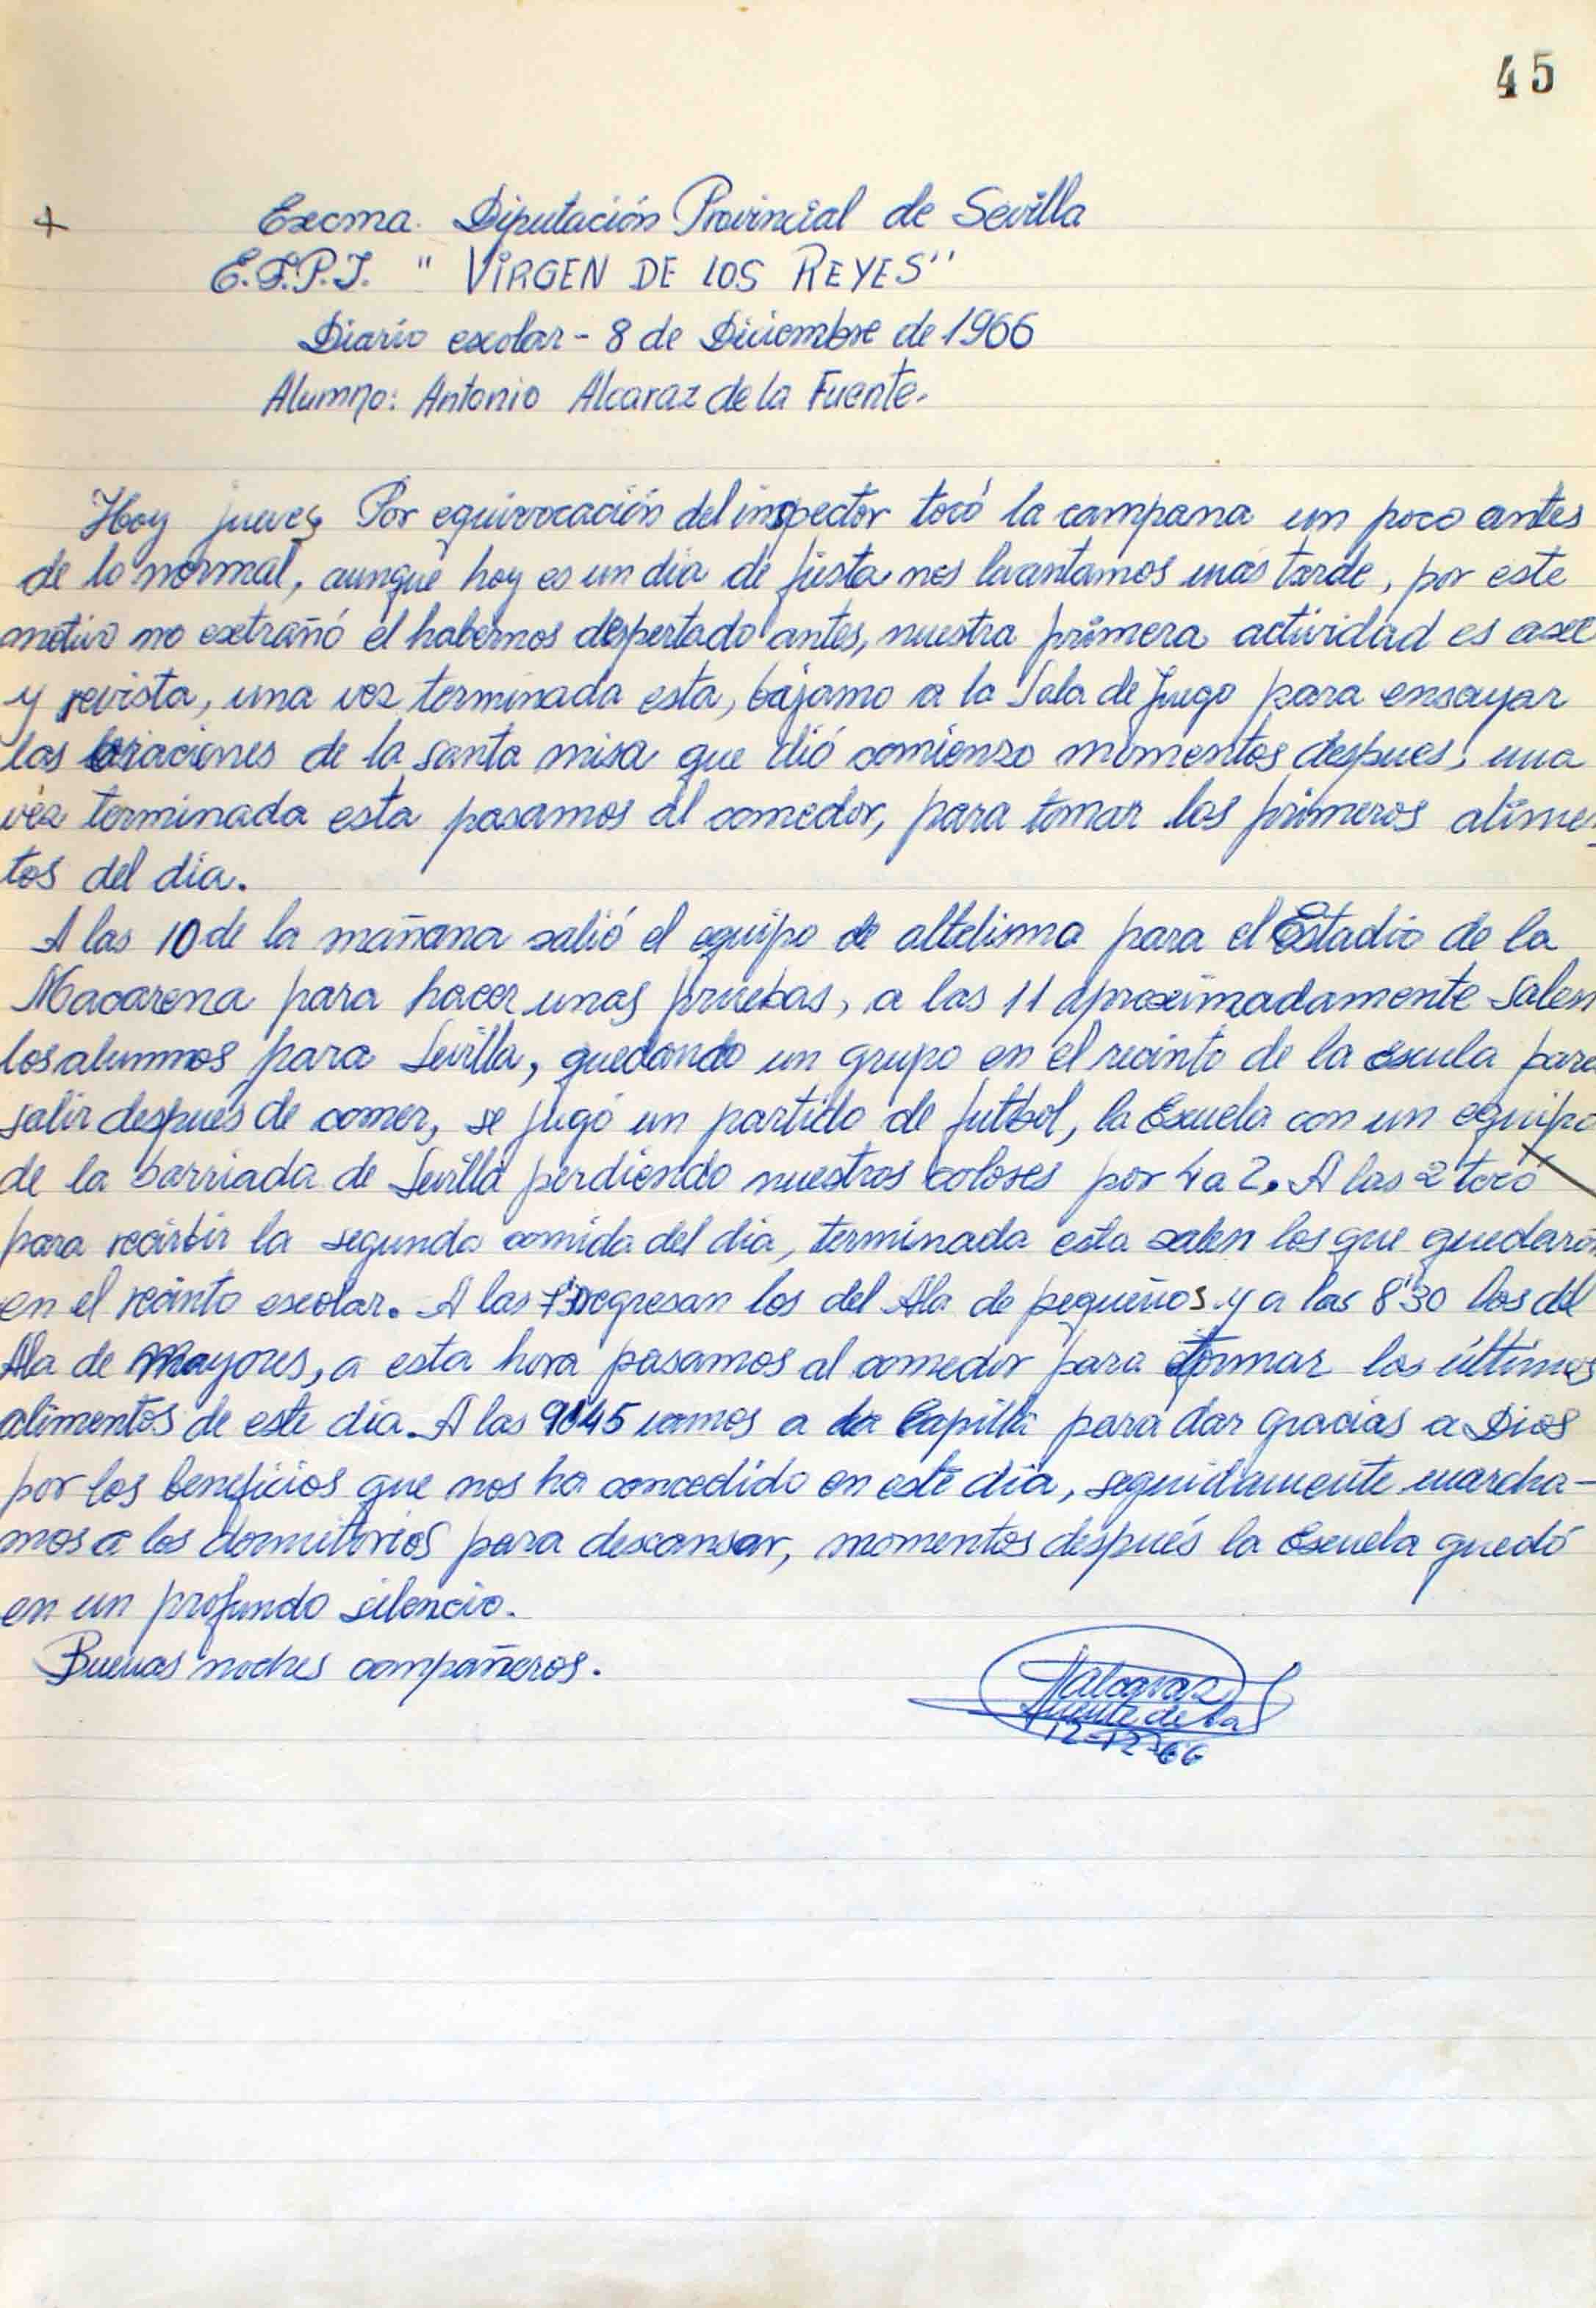 45
+
Excma. Diputación Provincial de Sevilla
E.F.P.I. " VIRGEN DE LOS REYES"
Diario escolar - 8 de Diciembre de 1966
Alumno: Antonio Alcaraz de la Fuente.
Hoy jueves Por equivocación del inspector tocó la campana un poco antes
de lo normal, aunque hoy es un dia de fiesta nos levantamos mas tarde, por este
motivo no extrañó el habernos despertado antes, nuestra primera actividad es aseo
y revista, una vez terminada esta, bajamo a la Sala de Juego para ensayar
las oraciones de la santa misa que dió comienzo momentos despues, una
vez terminada esta pasamos al comedor, para tomar los primeros alimen-
tos del dia.
A las 10 de la mañana salió el equipo de altelismo para el Estadio de la
Macarena para hacer unas pruebas, a las 11 aproximadamente salen
los alumnos para Sevilla, quedando un grupo en el recinto de la escula para
salir después de comer, se jugó un partido de futbol, la Escuela con un equipo
de la barriada de Sevilla perdiendo nuestros colores por 4 a 2. A las 2 tocó
para recirbir la segunda comida del dia, terminada esta salen los que quedaron
en el recinto escolar. A las regresan los del Ala de pequeños y a las 8'30 los del
Ala de Mayores, a esta hora pasamos al comedor para tomar los últimos
alimentos de este dia. A las 9'45 vamos a la Capilla para dar gracias a Dios
por los beneficios que nos ha concedido en este dia, seguidamente marcha-
mos a los dormitorios para descansar, momentos después la Escuela quedó
en un profundo silencio.
Buenas noches compañeros.
Alcaraz
Fuente de la
12-12-66